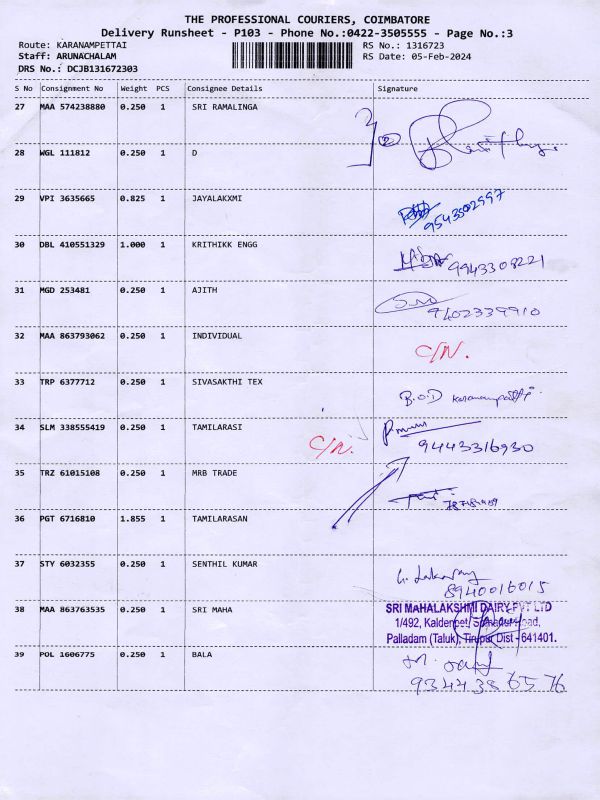 THE PROFESSIONAL COURIERS, COIMBATORE
Delivery Runsheet - P103 - Phone No.:0422-3505555 - Page No.:3
Route: KARANAMPETTAI RS No.: 1316723
Staff: ARUNACHALAM RS Date: 05-Feb-2024
DRS No.: DCJB131672303
S No Consignment No Weight PCS Consignee Details Signature
27 MAA 574238880 0.250 1 SRI RAMALINGA
28 WGL 111812 0.250 1 D
29 VPI 3635665 0.825 1 JAYALAKXMI
9543502597
30 DBL 410551329 1.000 1 KRITHIKK ENGG 9943308221
31 MGD 253481 0.250 1 AJITH
9402339910
32 MAA 863793062 0.250 1 INDIVIDUAL
C/N.
33 TRP 6377712 0.250 1 SIVASAKTHI TEX
B.O.D
34 SLM 338555419 0.250 1 TAMILARASI
C/N. 9443316930
35 TRZ 61015108 0.250 1 MRB TRADE
36 PGT 6716810 1.855 1 TAMILARASAN
37 STY 6032355 0.250 1 SENTHIL KUMAR
8940016015
38 MAA 863763535 0.250 1 SRI MAHA
SRI MAHALAKSHMI DAIRY PVT LTD
1/492, Road,
Palladam (Taluk), Tirupur Dist - 641401.
39 POL 1606775 0.250 1 BALA
9344386576